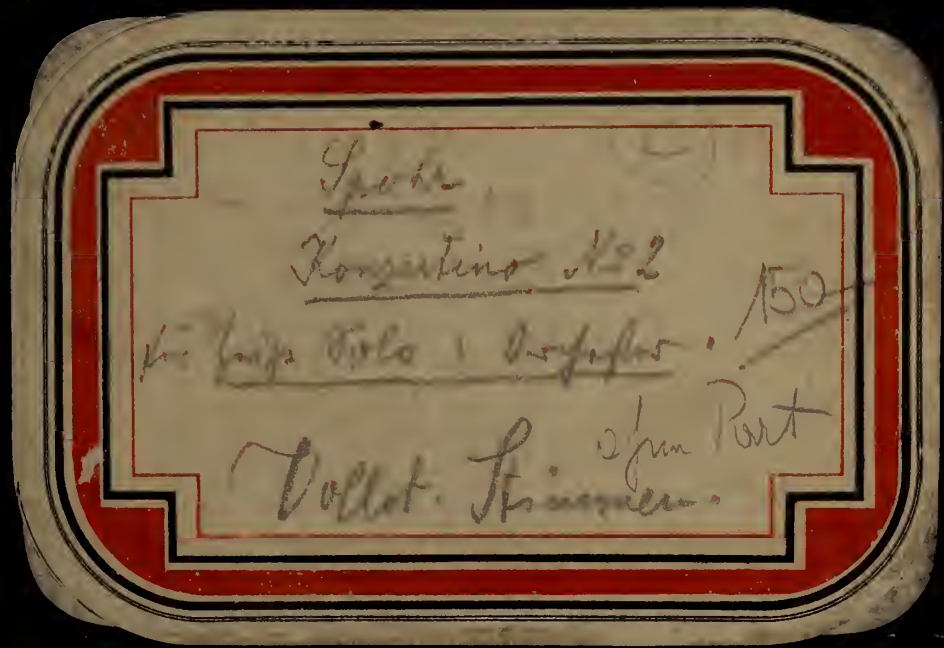 Spohr
Konzertino No 2
für Geige Solo & Orchester.
150
ohne Part
Vollst. Stimmen.